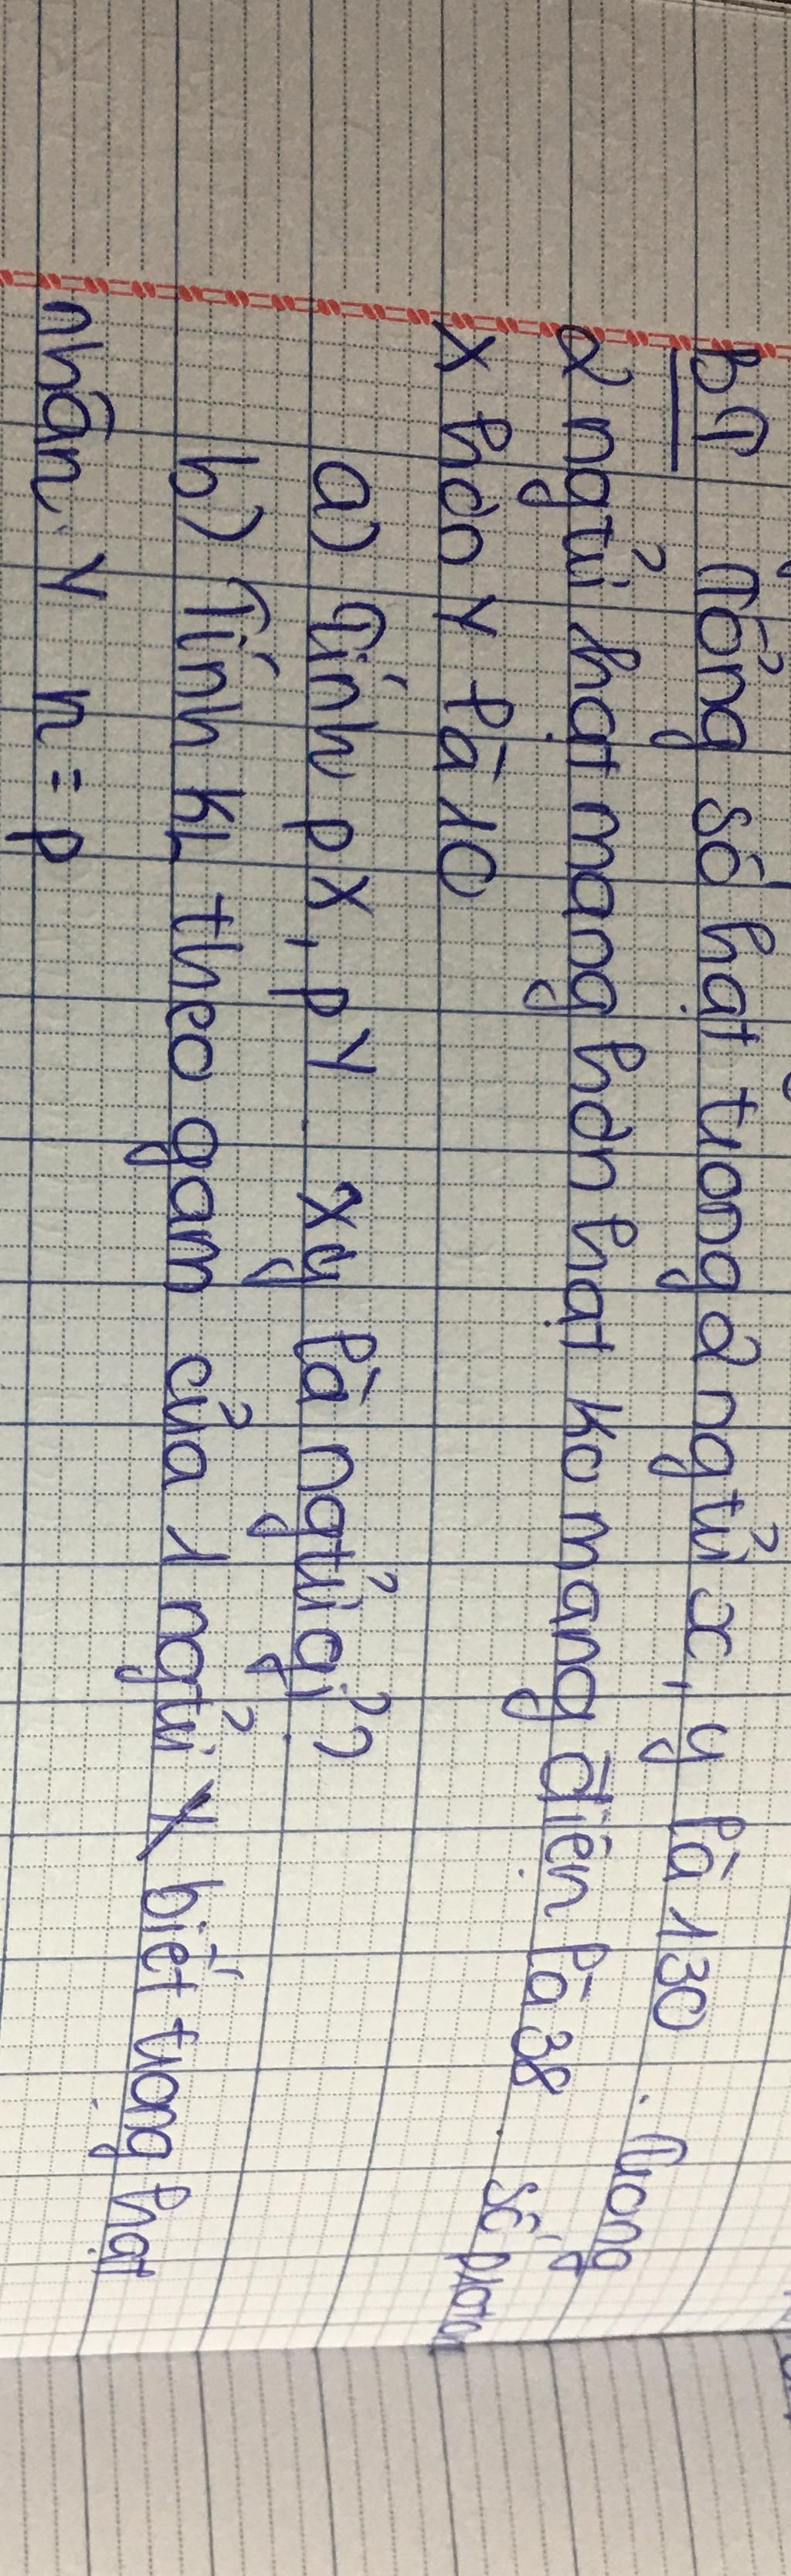 BT Tổng số hạt tuong 2 ngtử x, y là 130. Tuong
2 ngtử hạt mang hơn hạt ko mang điện là 38. Số proton
X hơn Y là 10
a) Tính pX, pY. xy là ngtử gì??
b) Tính KL theo gam của 1 ngtử X biết tuong hạt
nhân Y n = p